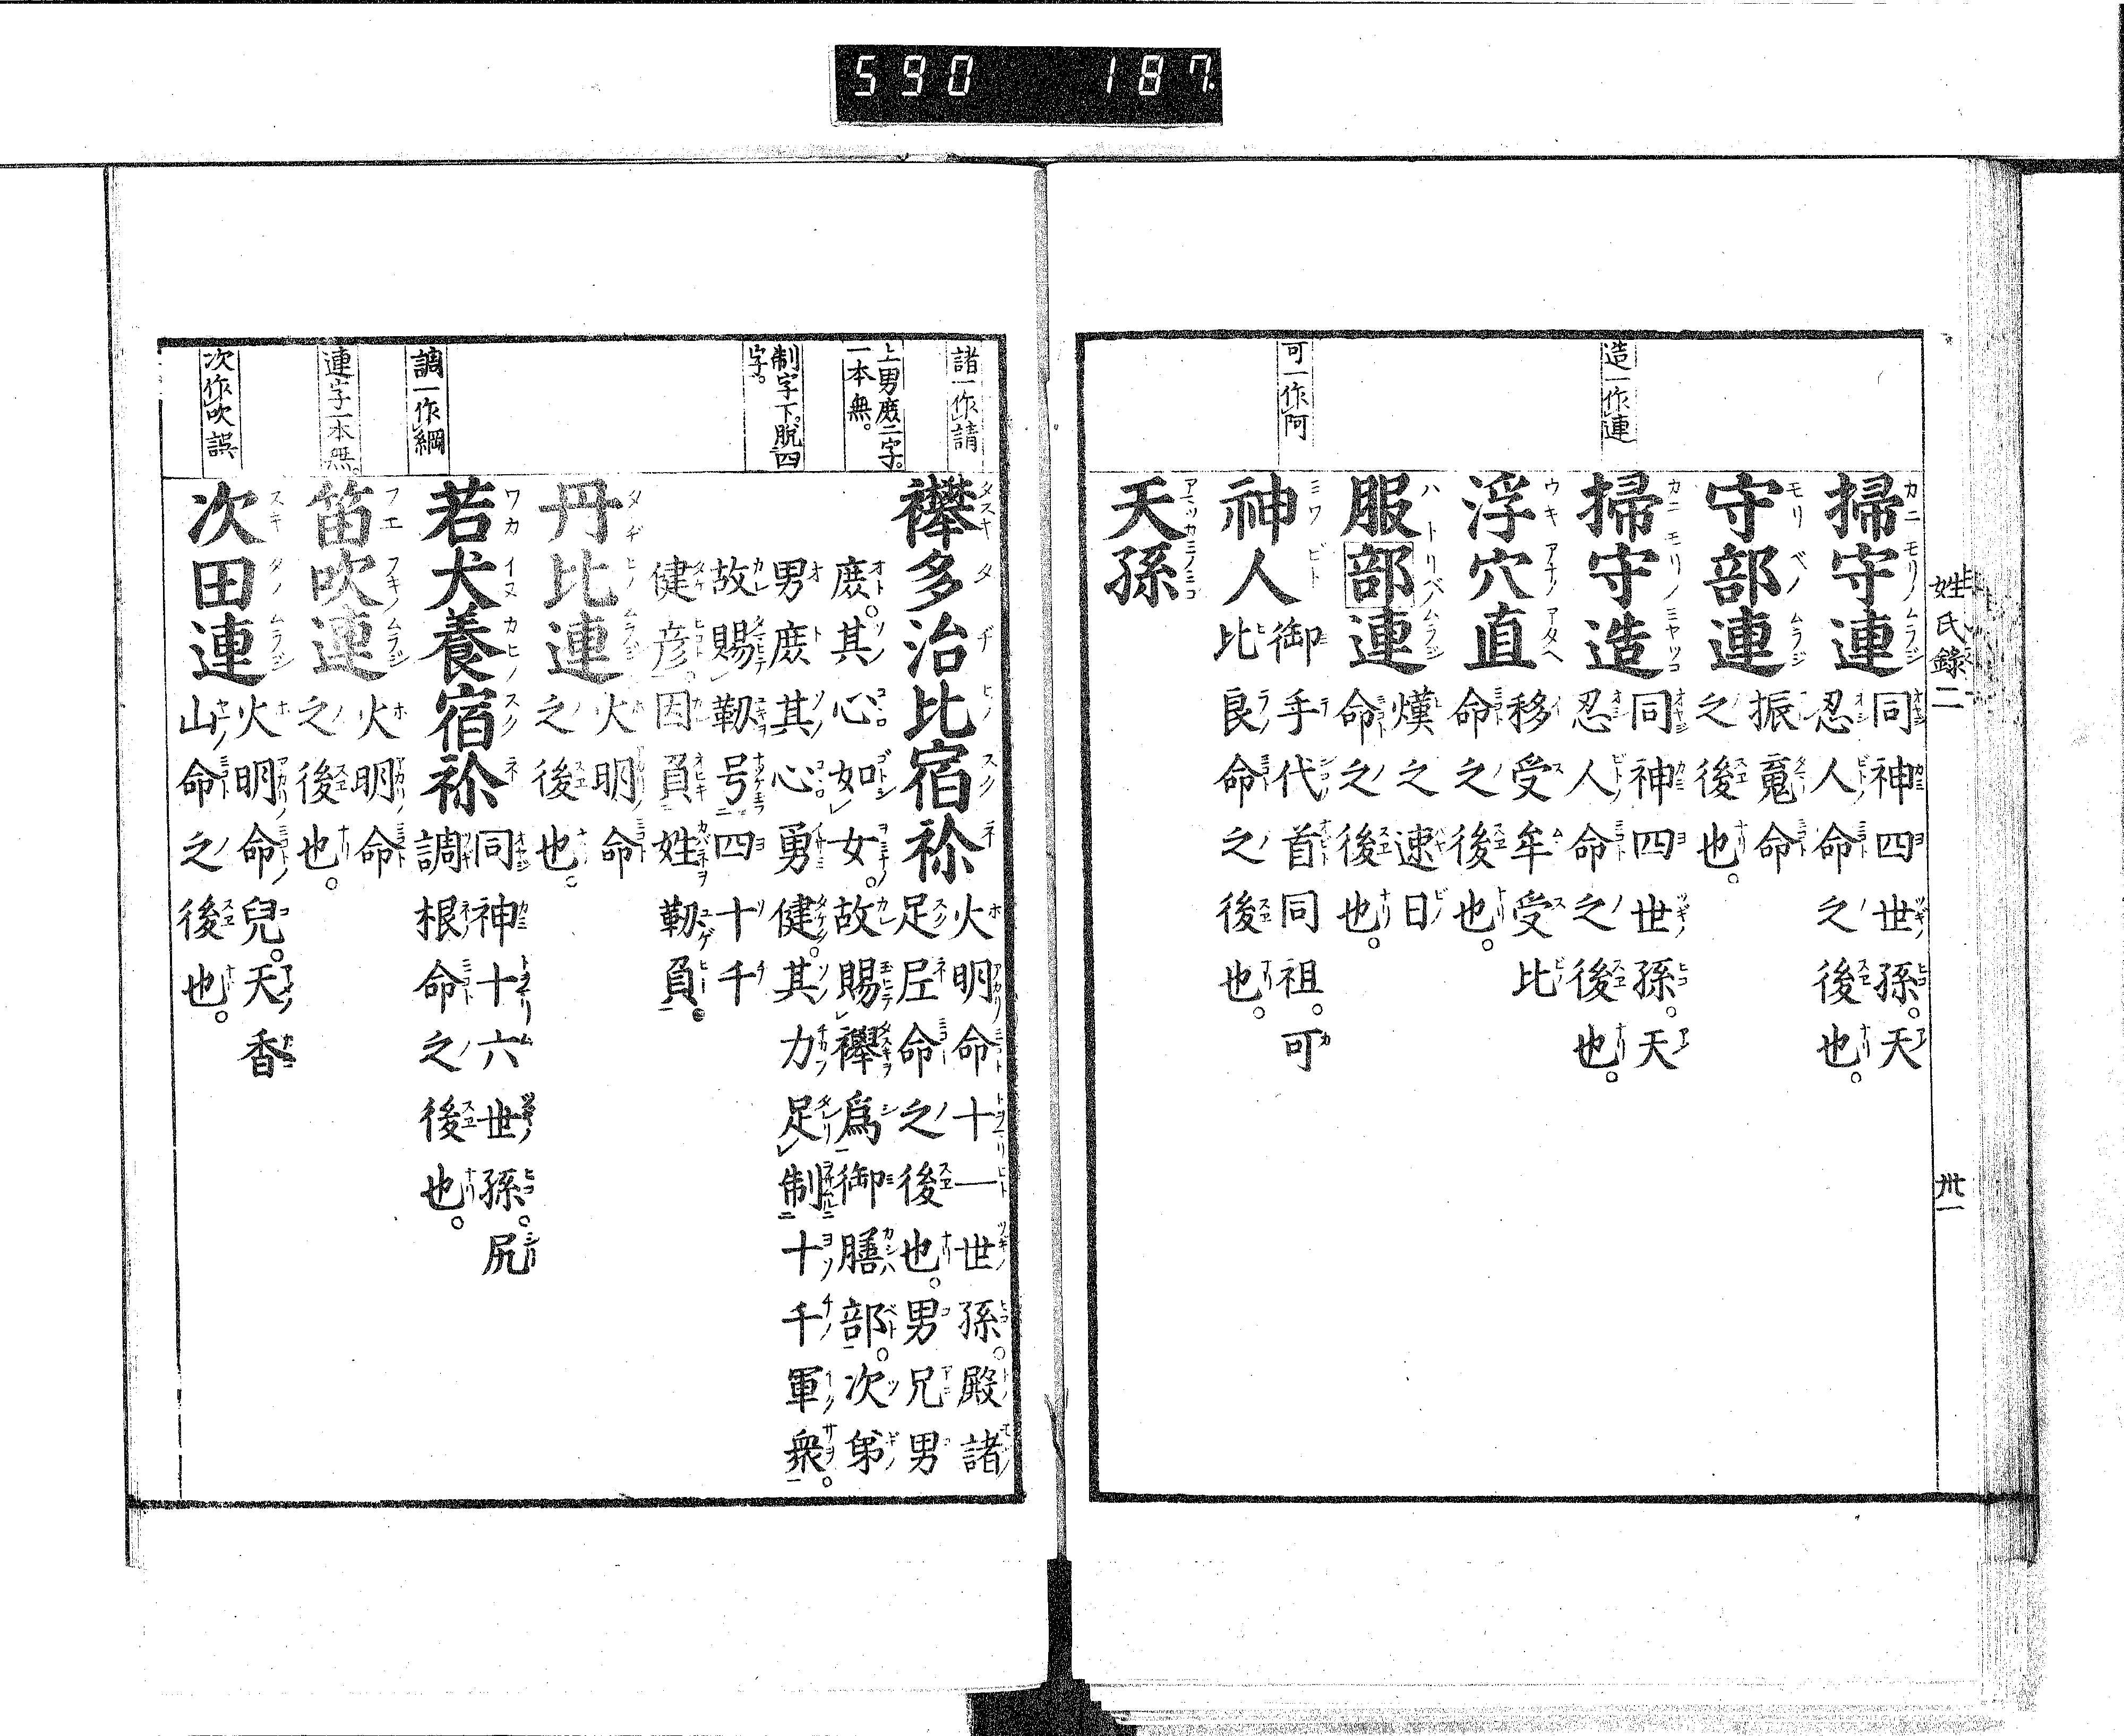 590 187.
姓氏錄二
卅一
造一作連
可一作阿
掃守連
同神四世孫。天
忍人命之後也。
守部連
振䰟命
之後也。
掃守造
同神四世孫。天
忍人命之後也。
浮穴直
移受牟受比
命之後也。
服部連
熯之速日
命之後也。
神人
御手代首同祖。可
比良命之後也。
天孫
諸一作請
上男庶二字。
一本無。
制字下。脫四
字。
調一作綱
連字一本無。
次作吹誤
襷多治比宿祢
火明命十一世孫。殿諸
足尼命之後也。男兄男
庶。其心如女。故賜襷爲御膳部。次弟
男庶其心勇健。其力足制十千軍衆。
故賜靱号四十千
健彦。因負姓靱負。
丹比連
火明命
之後也。
若犬養宿祢
同神十六世孫。尻
調根命之後也。
笛吹連
火明命
之後也。
次田連
火明命兒。天香
山命之後也。